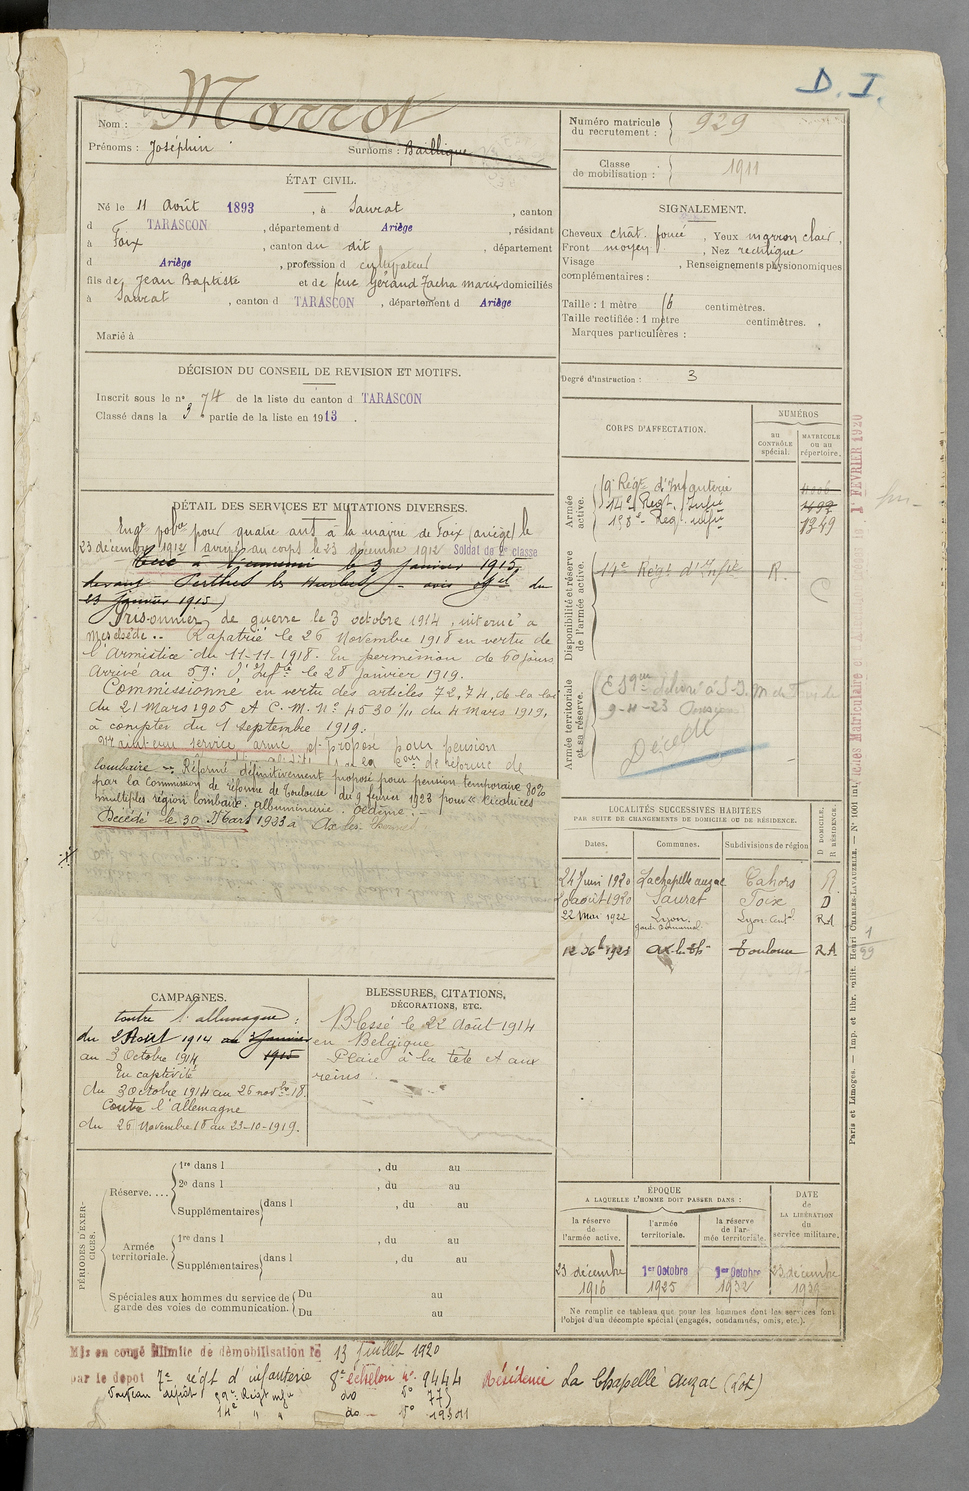 D. I.
Marrot
Nom :
Prénoms : Joséphin Surnoms : Baillique
Numéro matricule du recrutement : 929
Classe de mobilisation : 1911
ÉTAT CIVIL.
Né le 11 Août 1893, à Saurat, canton
d TARASCON, département d Ariège, résidant
à Foix, canton du dit, département
d Ariège, profession d cultivateur
fils de Jean Baptiste et de feue Géraud Zacha marie domiciliés
à Saurat, canton d TARASCON, département d Ariège
Marié à
SIGNALEMENT.
Cheveux chât. foncé, Yeux marron clair,
Front moyen, Nez rectiligne
Visage , Renseignements physionomiques
complémentaires :
Taille : 1 mètre 16 centimètres.
Taille rectifiée : 1 mètre centimètres.
Marques particulières :
Degré d'instruction : 3
DÉCISION DU CONSEIL DE REVISION ET MOTIFS.
Inscrit sous le n° 74 de la liste du canton d TARASCON
Classé dans la 3 partie de la liste en 1913.
DÉTAIL DES SERVICES ET MUTATIONS DIVERSES.
Engé pour quatre ans à la mairie de Foix (ariège) le
23 décembre 1912 arrivé au corps le 23 décembre 1912 Soldat de 2e classe
Tué à l'ennemi le 3 Janvier 1915
devant Perthes les Hurlus - avis du
23 Janvier 1915)
Prisonnier de guerre le 3 octobre 1914, interné à
Rapatrié le 26 Novembre 1918 en vertu de
l'Armistice du 11-11-1918. En permission de 60 jours
Arrivé au 59e d'Infie le 28 Janvier 1919.
Commissionné en vertu des articles 72, 74, de la loi
du 21 Mars 1905 et C.M. N° 4530 1/11 du 4 Mars 1919,
à compter du 1 septembre 1919.
Maintenu service armé et proposé pour pension
de réforme de
lombaire - Réformé définitivement proposé pour pension temporaire 80%
par la Commission de réforme de Toulouse du 9 février 1923 pour "cicatrices
multiples région lombaire. albuminurie. oedème. -
Décédé le 30 Mars 1933 à Ax les Thermes
CORPS D'AFFECTATION.
NUMÉROS
au CONTRÔLE spécial.
MATRICULE ou au répertoire.
Armée active.
9e Régt d'Infanterie
14e Régt Infie 1492
Régt Infie 1349
Disponibilité et réserve de l'armée active.
14e Régt d'Infie R.
Armée territoriale et sa réserve.
9-11-23
Décédé
LOCALITÉS SUCCESSIVES HABITÉES
PAR SUITE DE CHANGEMENTS DE DOMICILE OU DE RÉSIDENCE.
Dates. Communes. Subdivisions de région D DOMICILE, R RÉSIDENCE.
24 Juin 1920 Lachapelle auzac Cahors R
août 1920 Saurat Foix D
22 Mai 1922 Lyon. Lyon Centl RA
1923 Ax-les-Th Toulouse RA
1
99
CAMPAGNES.
Contre l'allemagne :
du 2 Août 1914 au 3 Janvier
1915
au 3 Octobre 1914
En captivité
du 3 octobre 1914 au 26 novbre 18.
Contre l'allemagne
du 26 Novembre 18 au 23-10-1919.
BLESSURES, CITATIONS,
DÉCORATIONS, ETC.
Blessé le 22 Août 1914
en Belgique
Plaie à la tête et aux
reins.
PÉRIODES D'EXERCICES.
Réserve....
1re dans l , du au
2e dans l , du au
Supplémentaires dans l , du au
Armée territoriale.
1re dans l , du au
Supplémentaires dans l , du au
Spéciales aux hommes du service de garde des voies de communication.
Du au
Du au
ÉPOQUE
A LAQUELLE L'HOMME DOIT PASSER DANS :
la réserve de l'armée active.
l'armée territoriale.
la réserve de l'armée territoriale.
DATE de LA LIBÉRATION du service militaire.
23 décembre 1916
1er Octobre 1925
1er Octobre 1932
23 décembre
Ne remplir ce tableau que pour les hommes dont les services font
l'objet d'un décompte spécial (engagés, condamnés, omis, etc.).
1er FEVRIER 1920
Paris et Limoges. — Imp. et libr. milit. Henri CHARLES-LAVAUZELLE. — N° 1001
Mis en congé illimité de démobilisation le 13 Juillet 1920
par le dépôt 7e régt d'infanterie 8e échelon n° 9444 Résidence La Chapelle auzac (Lot)
Nouveau dépôt 59e Régt infie do N° 77
14e " " do - N° 19311